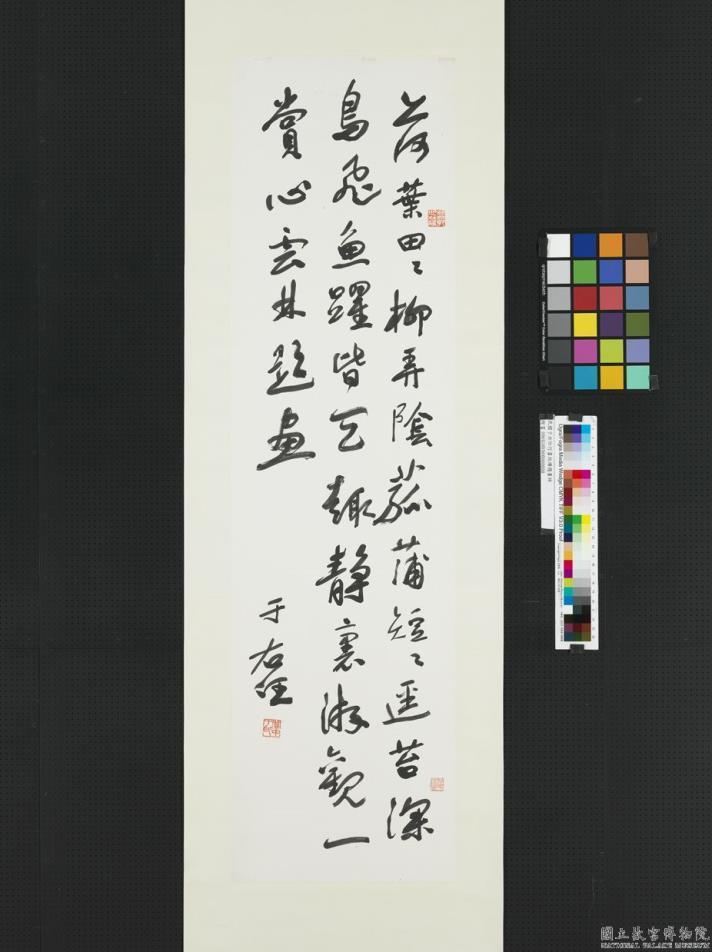 荷葉田〻柳弄陰菰蒲短〻逕苔深
鳥飛魚躍皆天趣靜裏游觀一
賞心雲林題畫
于右任
國立故宮博物院
NATIONAL PALACE MUSEUM